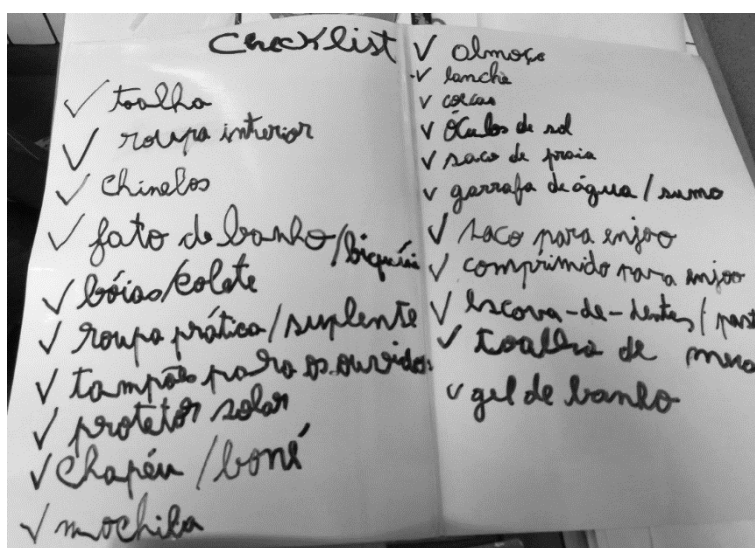 Checklist
toalha
roupa interior
chinelos
fato de banho/biquíni
bóias/colete
roupa prática/suplente
tampões para os ouvidos
protetor solar
chapéu/boné
mochila
almoço
lanche
óculos de sol
saco de praia
garrafa de água/sumo
saco para enjoo
comprimido para enjoo
escova-de-dentes/
toalha de mesa
gel de banho